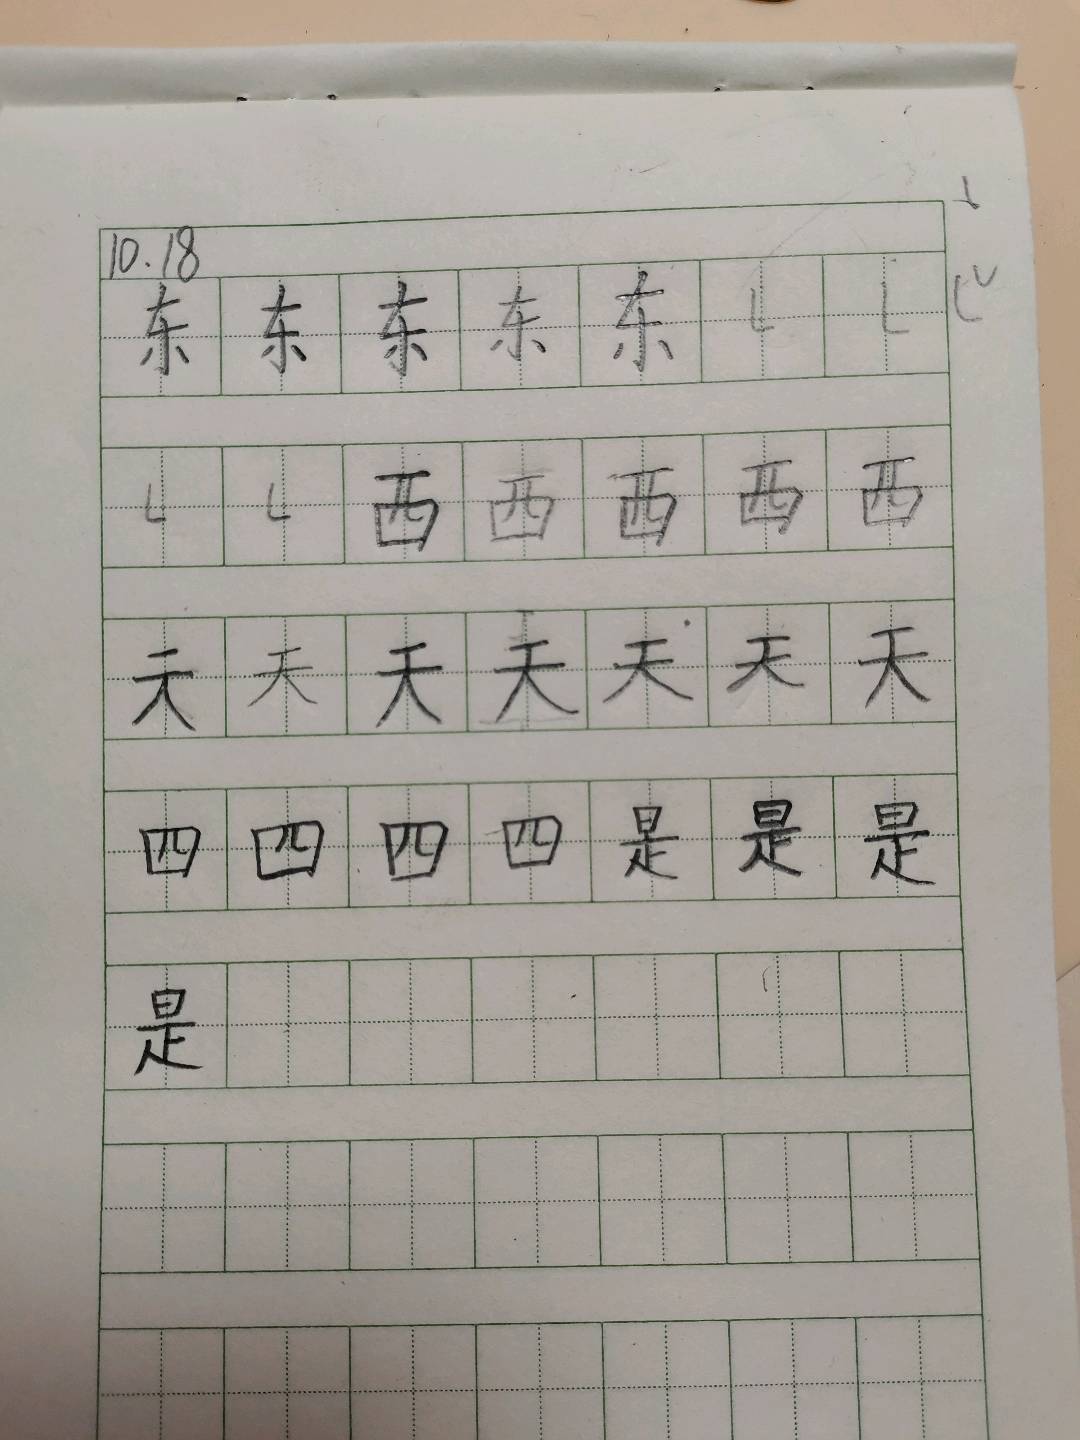 10.18
东 东 东 东 东 ㇗ ㇗
㇗ ㇗ 西 西 西 西 西
天 天 天 天 天 天 天
四 四 四 四 是 是 是
是